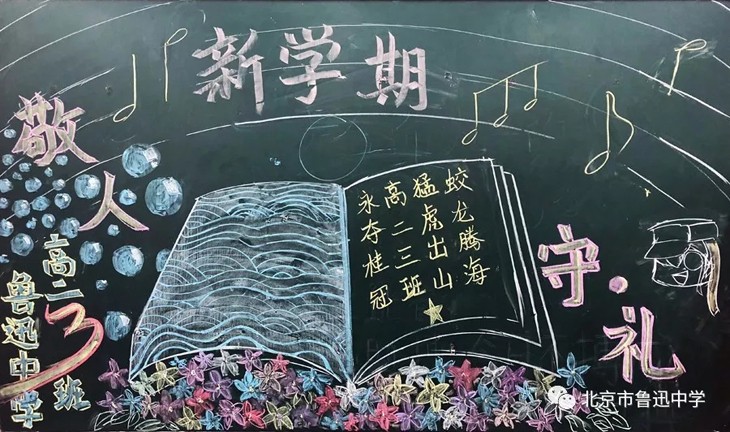 新学期
敬人
高二3班
鲁迅中学
蛟龙腾海
猛虎出山
高二三班
永夺桂冠
守礼
北京市鲁迅中学